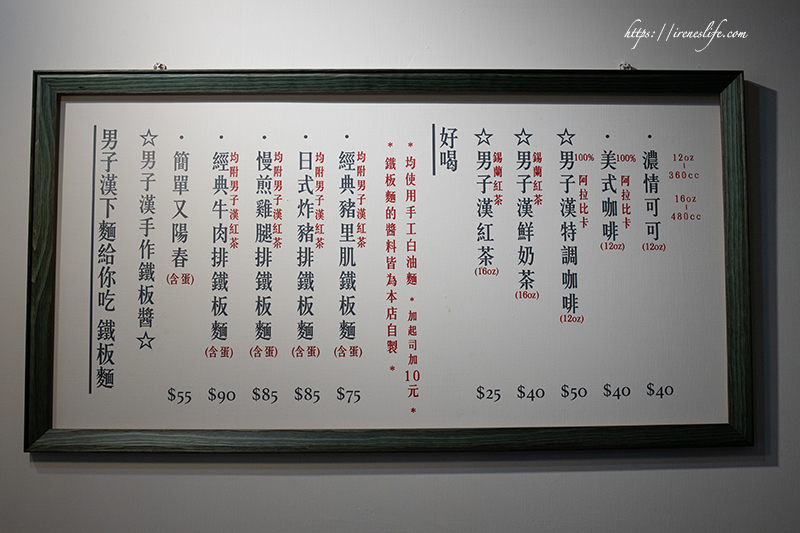 https://ireneslife.com
男子漢下麵給你吃 鐵板麵
☆男子漢手作鐵板醬☆
・簡單又陽春(含蛋) $55
・經典牛肉排鐵板麵(含蛋) $90
均附男子漢紅茶
・慢煎雞腿排鐵板麵(含蛋) $85
均附男子漢紅茶
・日式炸豬排鐵板麵(含蛋) $85
均附男子漢紅茶
・經典豬里肌鐵板麵(含蛋) $75
均附男子漢紅茶
*鐵板麵的醬料皆為本店自製*
*均使用手工白油麵。加起司加10元*
好喝
☆男子漢紅茶(16oz) $25
錫蘭紅茶
☆男子漢鮮奶茶(16oz) $40
錫蘭紅茶
☆男子漢特調咖啡(12oz) $50
100% 阿拉比卡
・美式咖啡(12oz) $40
100% 阿拉比卡
・濃情可可(12oz) $40
12oz
|
360cc
16oz
|
480cc